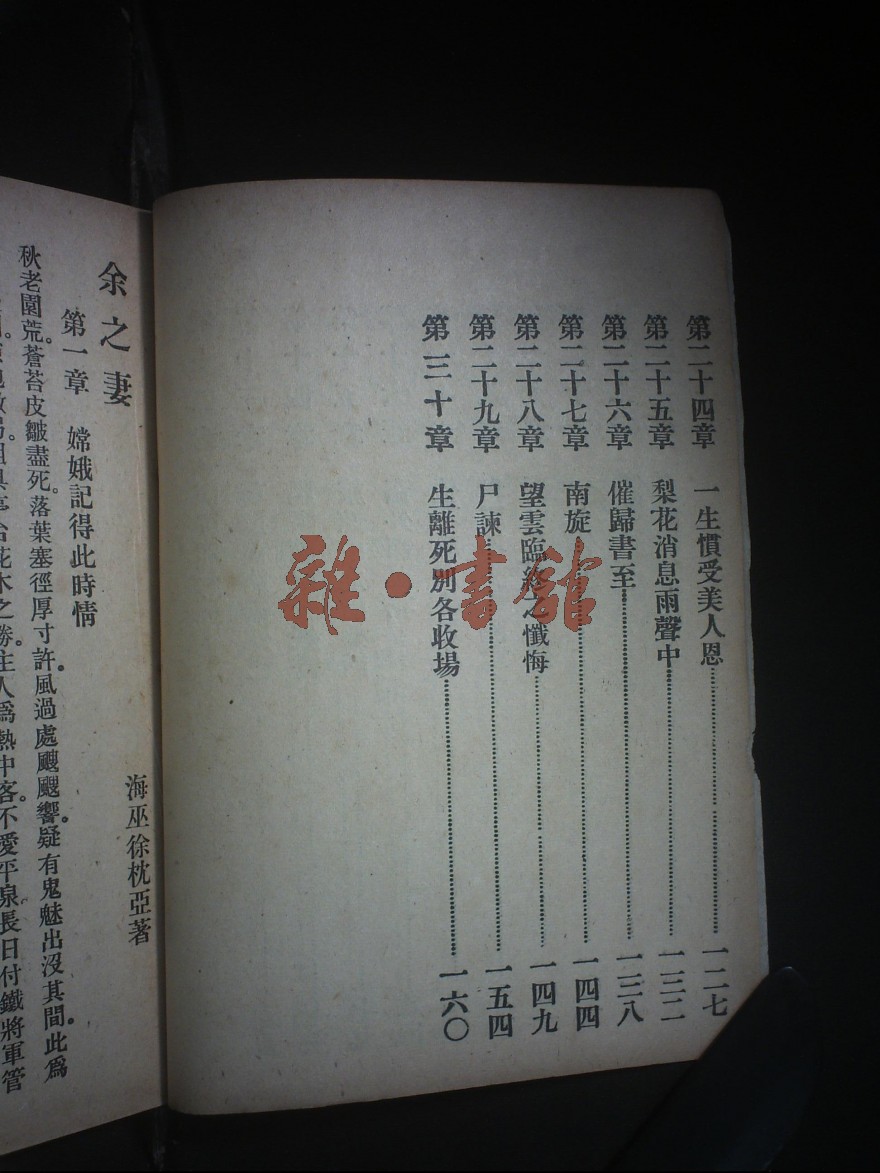 第二十四章　一生慣受美人恩……一二七
第二十五章　梨花消息雨聲中……一三二
第二十六章　催歸書至……一三八
第二十七章　南旋……一四四
第二十八章　望雲臨終之懺悔……一四九
第二十九章　尸諫……一五四
第三十章　生離死別各收場……一六〇
雜·書館
海巫徐枕亞著
余之妻
第一章　嫦娥記得此時情
秋老園荒。蒼苔皮皺盡死。落葉塞徑厚寸許。風過處颼颼響。疑有鬼魅出沒其間。此爲
花木之勝。主人爲熱中客。不愛平泉。長日付鐵將軍管